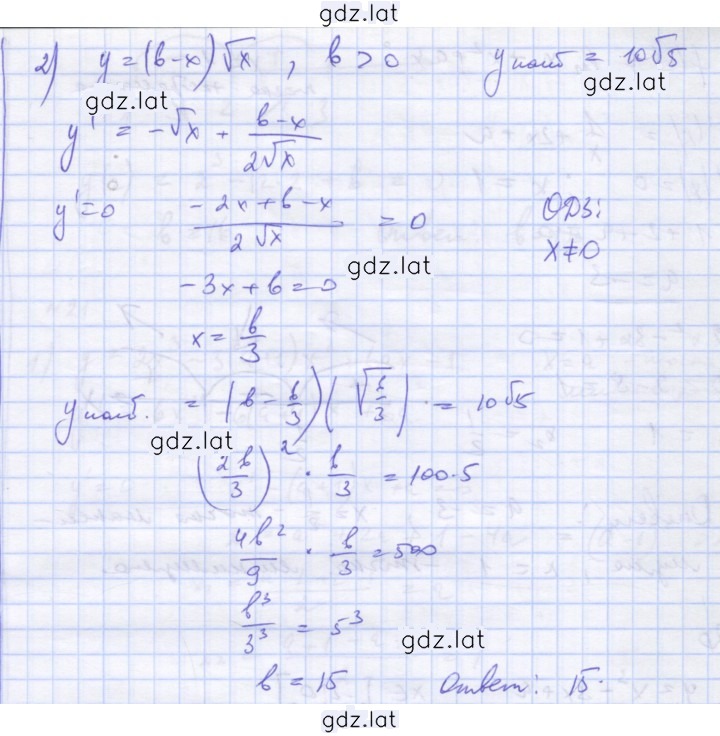 gdz.lat
2) y = (b-x)√x , b > 0 y наиб = 10√5
gdz.lat gdz.lat
y' = -√x + (b-x)/(2√x)
y'=0 (-2x+b-x)/(2√x) = 0 ОДЗ:
gdz.lat x≠0
-3x+b=0
x = b/3
y наиб. = (b - b/3)(√(b/3)) = 10√5
gdz.lat
(2b/3)² · b/3 = 100·5
4b²/9 · b/3 = 500
b³/3³ = 5³
gdz.lat
b = 15 Ответ: 15.
gdz.lat